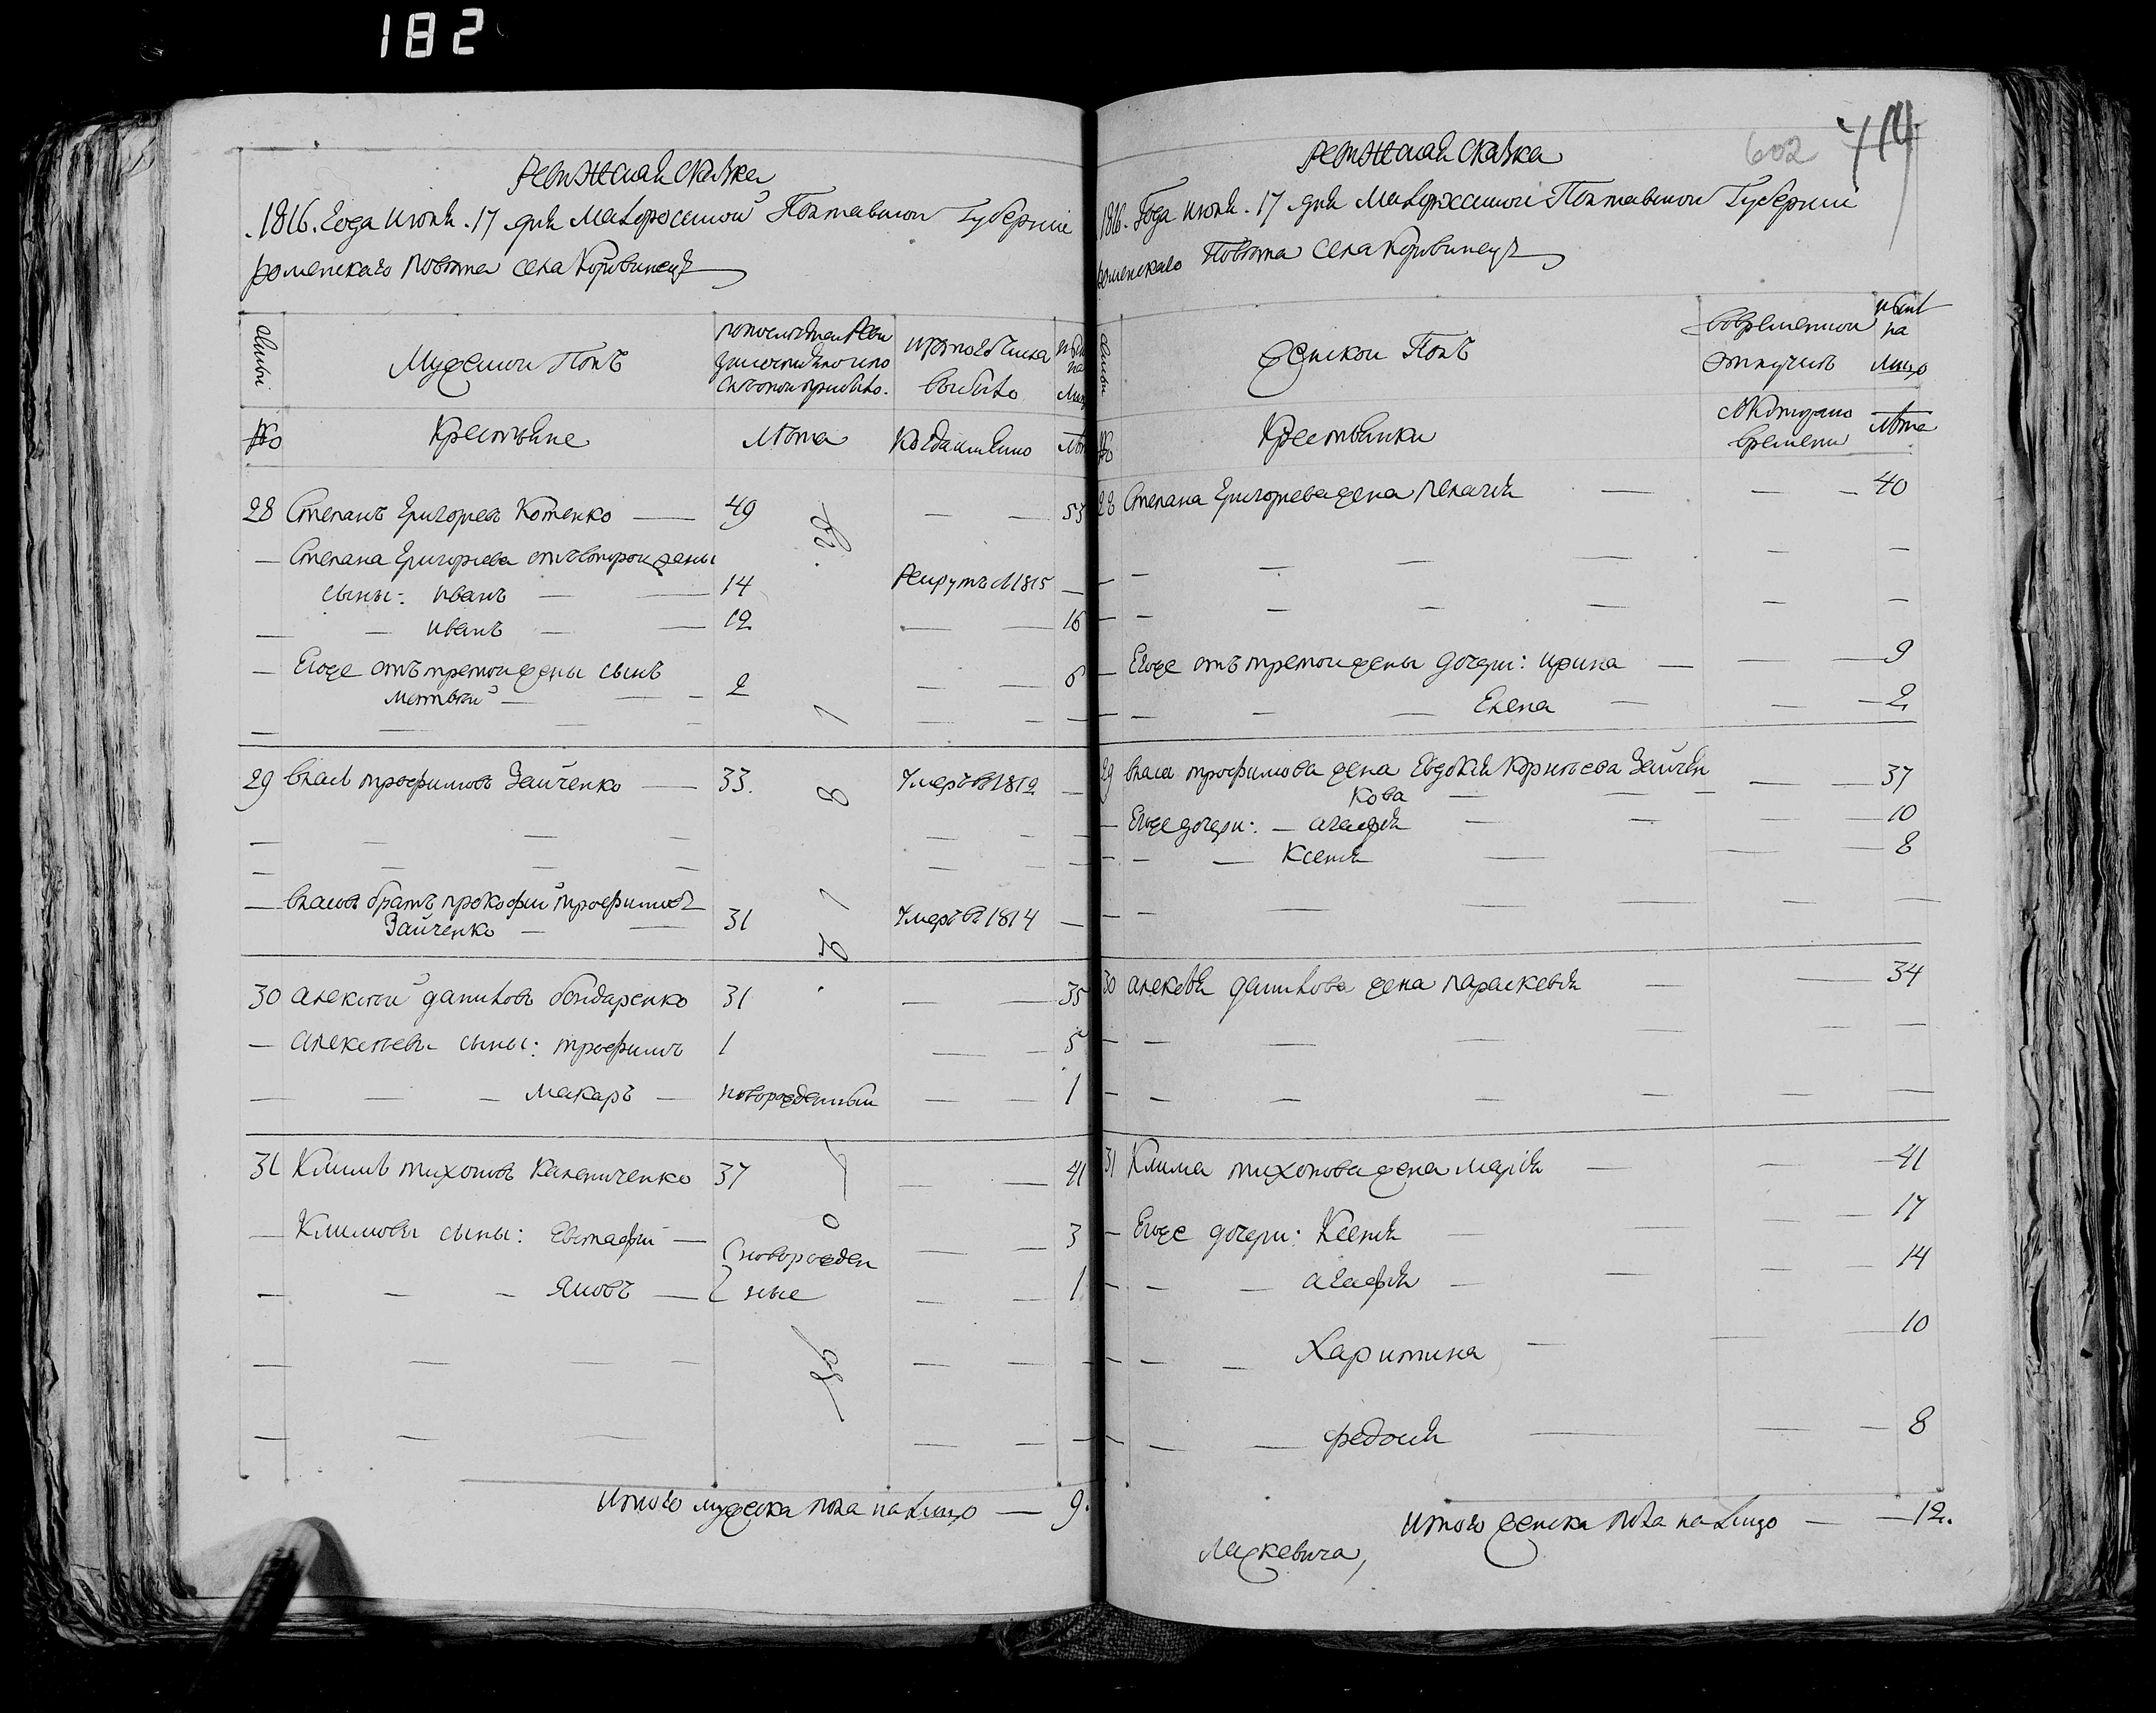 182
Ревижская сказка
1816. Года июня. 17 дня Малоросiйской Полтавской Губернiи
роменскаго повѣта села Коровинецъ
Семьи
Мужеской Полъ
по последней реви
зiи состояло и по
слѣ оной прибыло.
Изъ того числа
выбыло
Нынѣ
на
Лицо
№
Крестьяне
Лѣта
Когда именно
Лѣта
28 Степанъ Григорьевъ Котенко — 49 — — 53
— Степана Григорьева отъ второй жены
сыны: иванъ — — 14 Рекрутъ в 1815 —
— — иванъ — — 12 — — 16
— Егоже отъ третой жены сынъ
матвѣй — — 2 — — 6
29 власъ трофимовъ Зайченко — 33. Умеръ в 1812 —
— власовъ братъ прокофiй трофимовъ
Зайченко — — 31 Умеръ в 1814 —
30 алексѣй даниловъ бондаренко 31 — — 35
— алексѣевы сыны: трофимъ 1 — — 5
— — — макаръ — новорожденный — — 1
31 Климъ тихоновъ Калениченко 37 — — 41
— Климовы сыны: Евстафiй — новорожден — — 3
— — — Яковъ — ные — — 1
Итого мужеска пола на лицо — 9.
602 714
Ревижская сказка
1816. Года июня. 17 дня Малоросiйской Полтавской Губернiи
роменскаго Повѣта села Коровинецъ
Семьи
Женской Полъ
Во временной
отлучкѣ
Нынѣ
на
Лицо
№
Крестьянки
Съ котораго
времени
Лѣта
28 Степана Григорьева жена пелагия — — — 40
— Егоже отъ третой жены дочери: ирина — — — 9
— — — — Елена — — — 2.
29 власа трофимова жена Евдокия Корнѣева Зайчен
кова — — — 37
— Егоже дочери: — агафiя — — — 10
— — — Ксенiя — — — 8
30 алексѣя данилова жена параскевiя — — 34
31 Клима тихонова жена марiя — — — 41
— Егоже дочери: Ксенiя — — — 17
— — — агафiя — — — 14
— — — Харитина — — — 10
— — — федосiя — — — 8
Итого женска пола на лицо — — 12.
Маркевича,